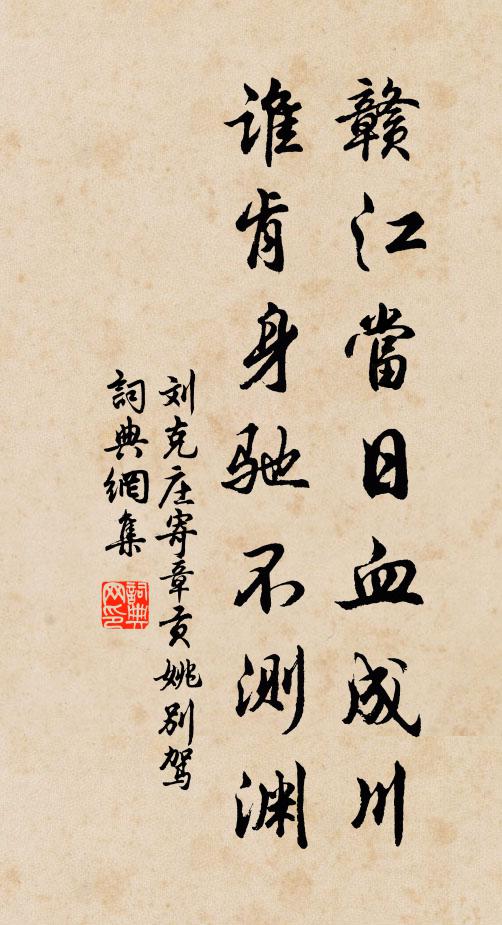 赣江當日血成川
谁肯身驰不测渊
刘克庄寄章贡姚别驾
詞典網集
詞典网印